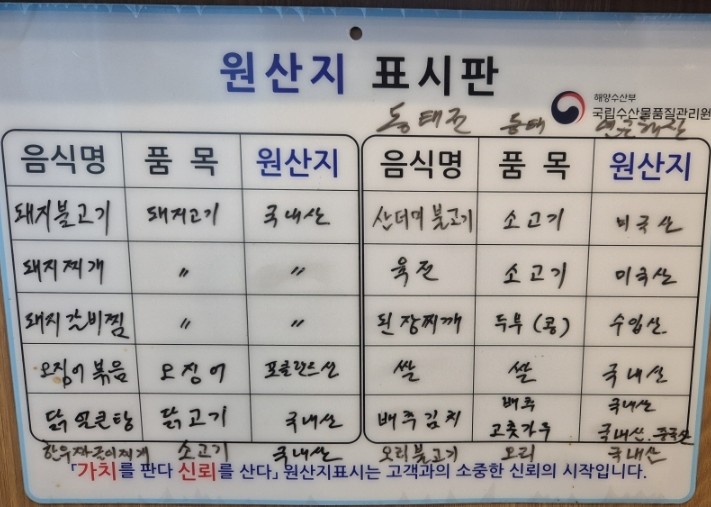 원산지 표시판
해양수산부
국립수산물품질관리원
동태전 동태 연근해산
음식명 품 목 원산지 음식명 품 목 원산지
돼지불고기 돼지고기 국내산 산더미 불고기 소고기 미국산
돼지찌개 〃 〃 육전 소고기 미국산
돼지갈비찜 〃 〃 된장찌깨 두부 (콩) 수입산
오징어 볶음 오징어 포클란드산 쌀 쌀 국내산
닭얼큰탕 닭고기 국내산 배추김치 배추 국내산
고춧가우 국내산. 중국산
한우자글이찌개 소고기 국내산 오리불고기 오리 국내산
「가치를 판다 신뢰를 산다」 원산지표시는 고객과의 소중한 신뢰의 시작입니다.